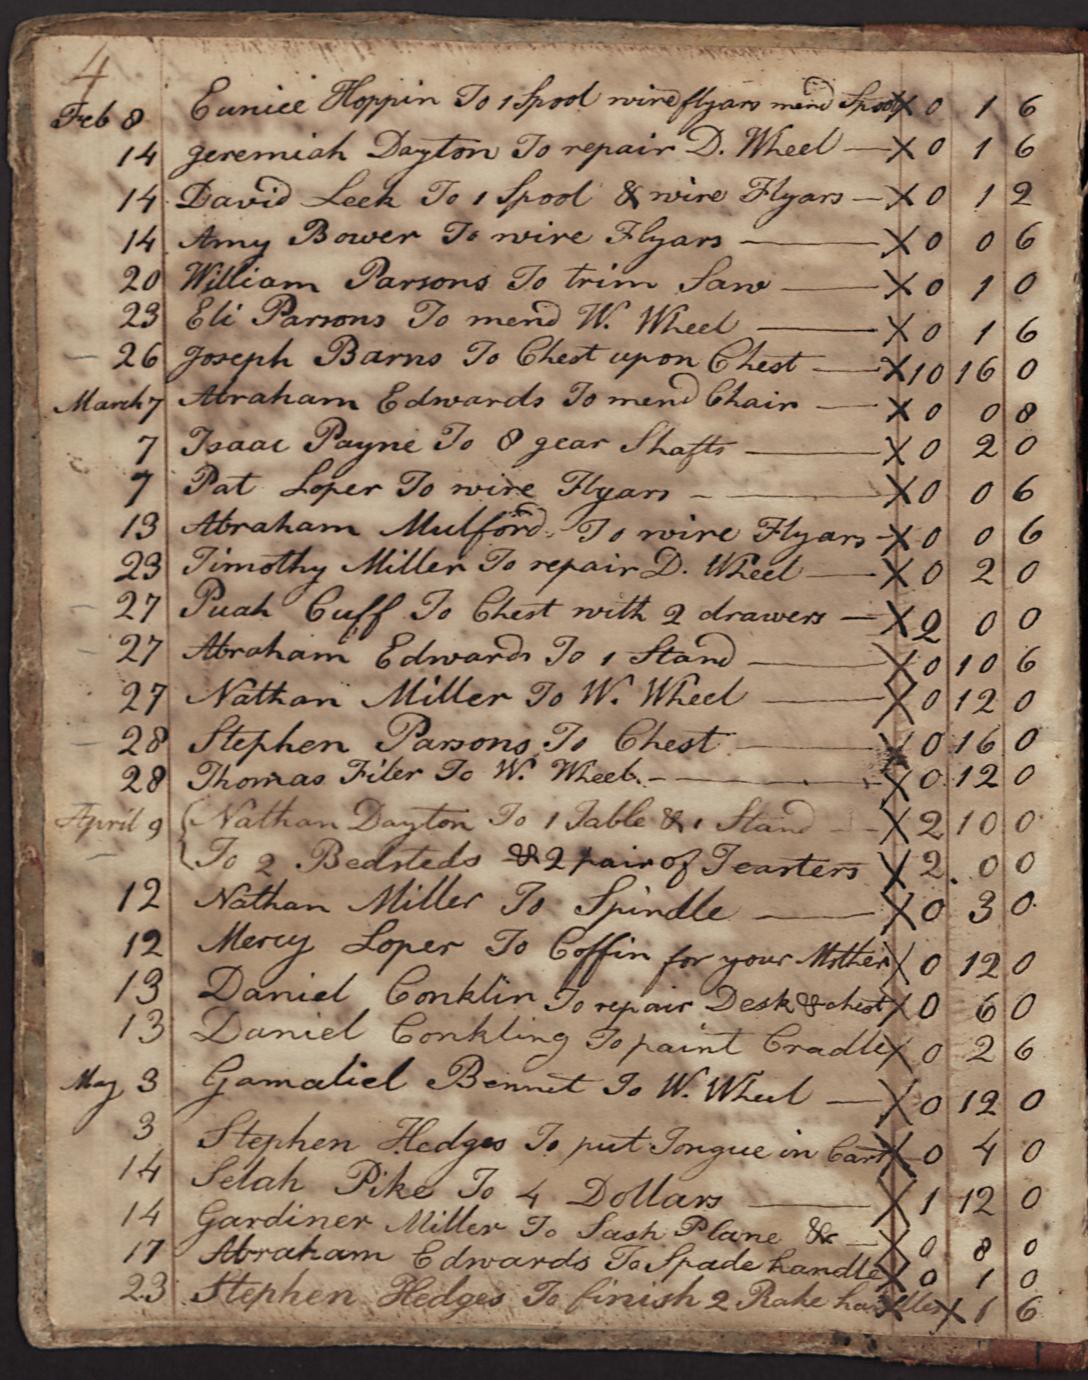 4
Feb 8 Eunice Hoppin To 1 Spool wire flyars mend Spool X 0 1 6
14 Jeremiah Dayton To repair D. Wheel — X 0 1 6
14 David Leek To 1 Spool & wire Flyars — X 0 1 2
14 Amy Bower To wire Flyars — X 0 0 6
20 William Parsons To trim Saw — X 0 1 0
23 Eli Parsons To mend W. Wheel — X 0 1 6
26 Joseph Barns To Chest upon Chest — X 10 16 0
March 7 Abraham Edwards To mend Chair — X 0 0 8
7 Isaac Payne To 8 gear Shafts — X 0 2 0
7 Pat Loper To wire Flyars — X 0 0 6
13 Abraham Mulford To wire Flyars — X 0 0 6
23 Timothy Miller To repair D. Wheel — X 0 2 0
27 Puah Cuff To Chest with 2 drawers — X 2 0 0
27 Abraham Edwards To 1 Stand — X 0 10 6
27 Nathan Miller To W. Wheel — X 0 12 0
28 Stephen Parsons To Chest — X 0 16 0
28 Thomas Filer To W. Wheel. — X 0 12 0
April 9 { Nathan Dayton To 1 Table & 1 Stand — X 2 10 0
To 2 Bedsteds & 2 pair of Tearters X 2 0 0
12 Nathan Miller To Spindle — X 0 3 0
12 Mercy Loper To Coffin for your Mother X 0 12 0
13 Daniel Conklin To repair Desk & chest X 0 6 0
13 Daniel Conkling To paint Cradle X 0 2 6
May 3 Gamaliel Bennet To W. Wheel — X 0 12 0
3 Stephen Hedges To put Tongue in Cart X 0 4 0
14 Selah Pike To 4 Dollars — X 1 12 0
14 Gardiner Miller To Sash Plane &c — X 0 8 0
17 Abraham Edwards To Spade handle X 0 1 0
23 Stephen Hedges To finish 2 Rake handles X 1 6